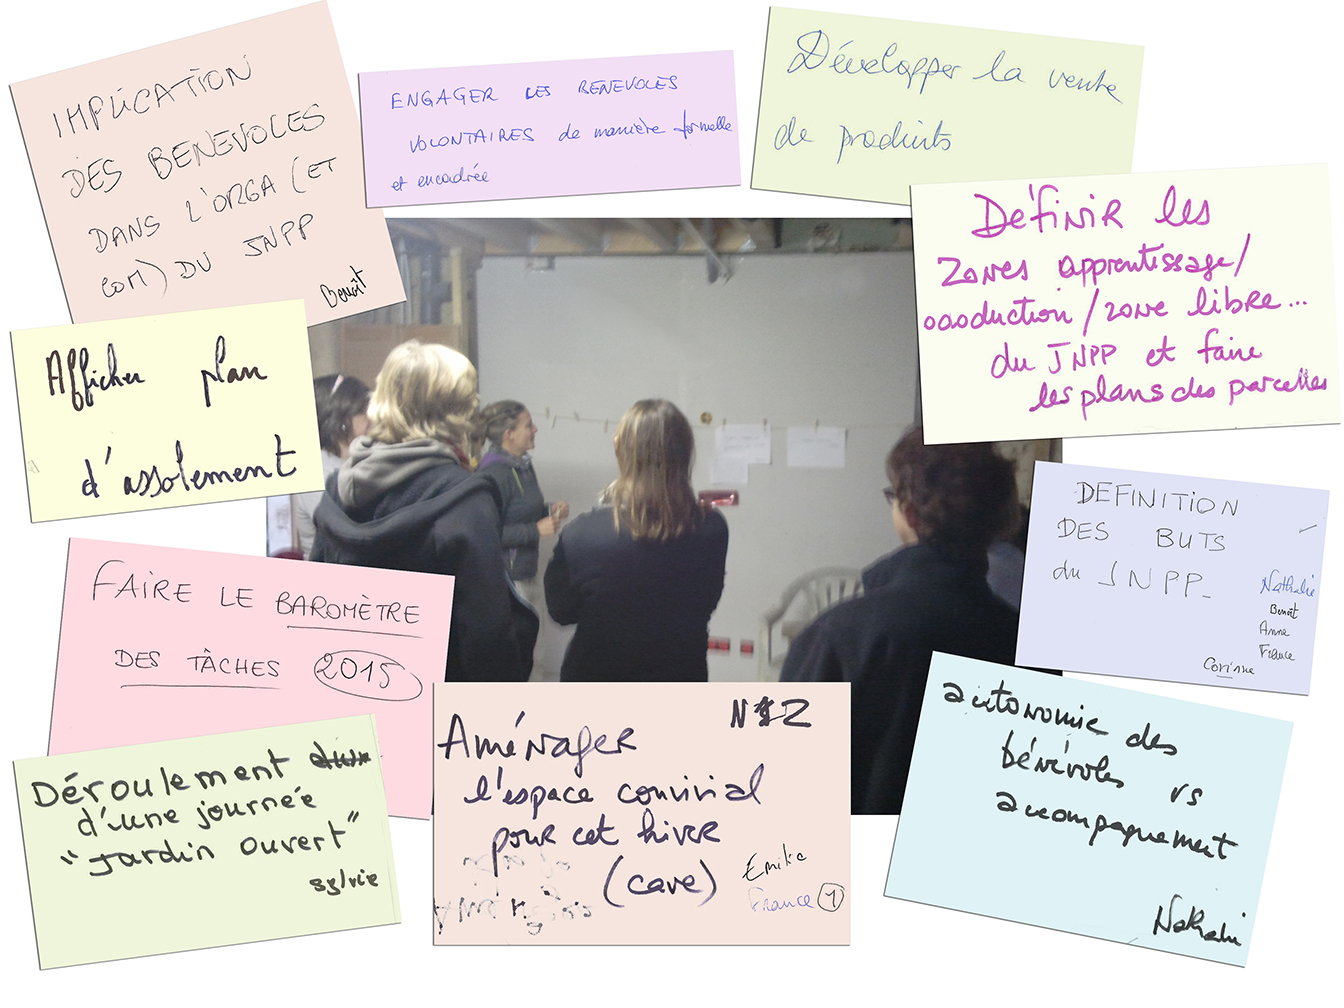 IMPLICATION
DES BENEVOLES
DANS L'ORGA (ET
COM) DU JNPP
Benoît
ENGAGER LES BENEVOLES
VOLONTAIRES de manière formelle
et encadrée
Développer la vente
de produits
Définir les
zones apprentissage/
production/zone libre...
du JNPP et faire
les plans des parcelles
Afficher plan
d'assolement
DEFINITION
DES BUTS
du JNPP_
Nathalie
Benoît
Anne
France
Corinne
FAIRE LE BAROMÈTRE
DES TÂCHES 2015
Déroulement
d'une journée
"Jardin Ouvert"
Sylvie
Aménager
l'espace convivial
pour cet hiver
(cave)
Emilie
France 1
autonomie des
bénévoles vs
accompagnement
Nathalie